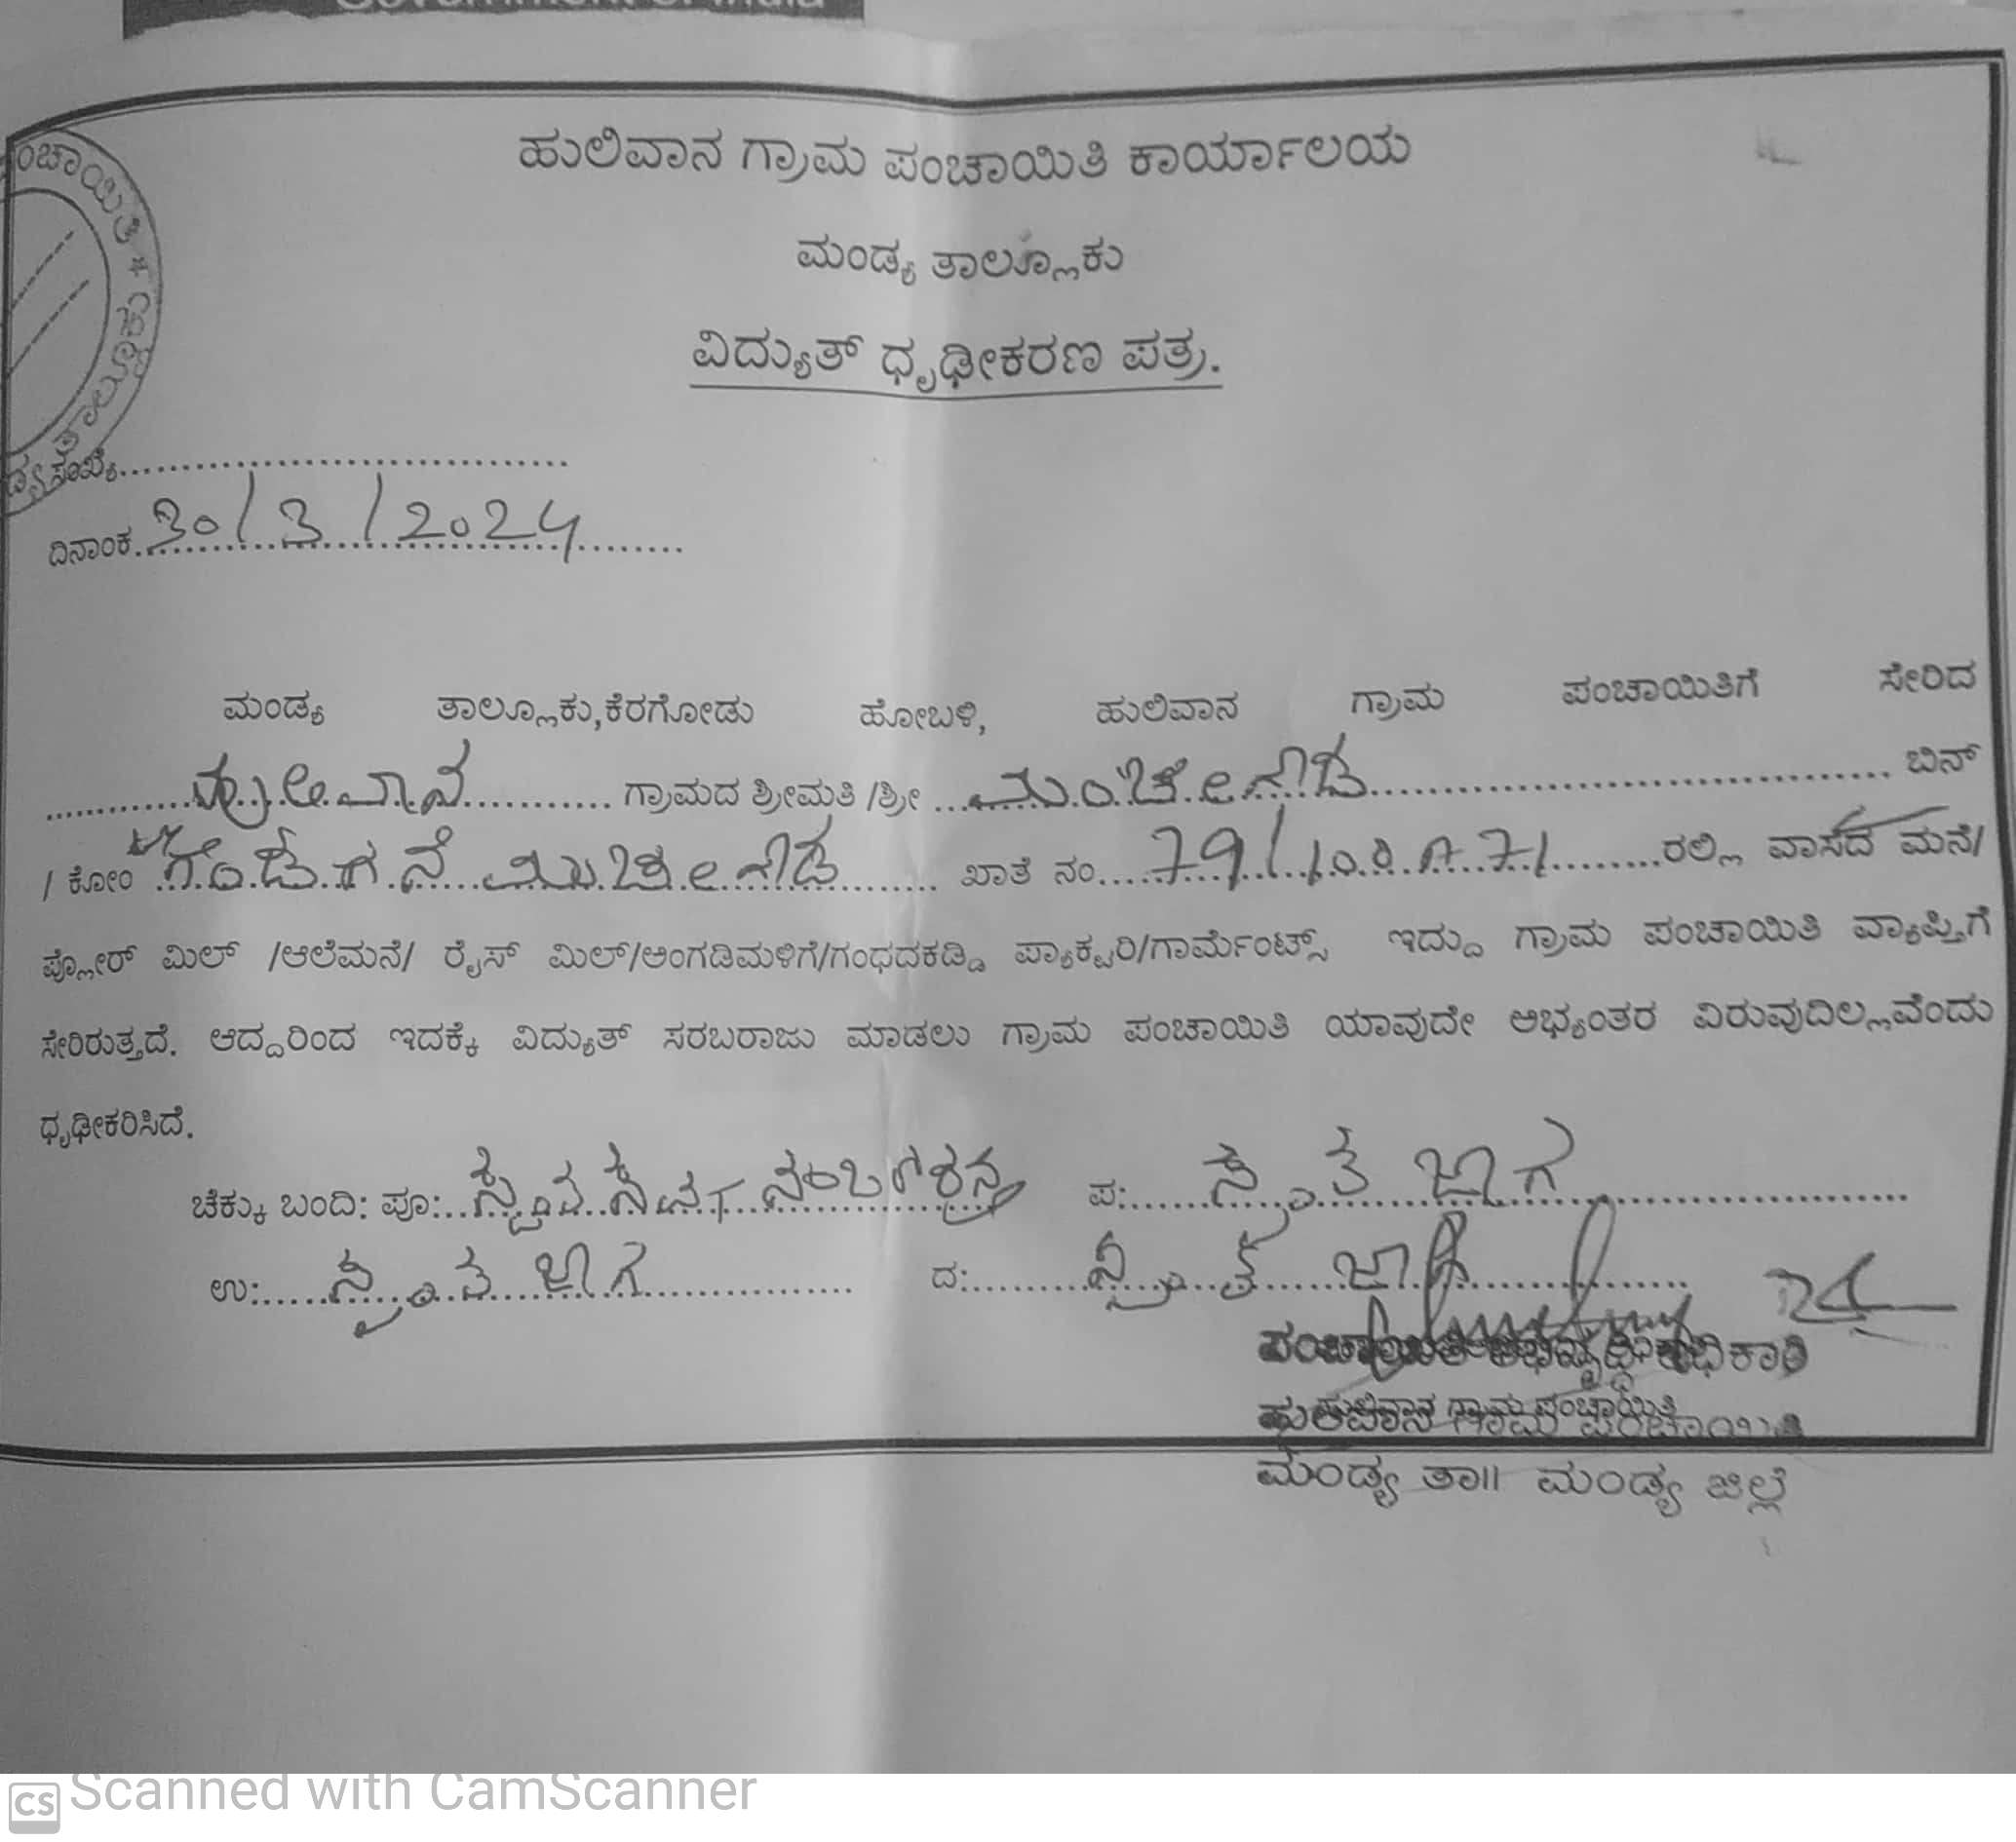 Government of India
ಹುಲಿವಾನ ಗ್ರಾಮ ಪಂಚಾಯಿತಿ ಕಾರ್ಯಾಲಯ
ಮಂಡ್ಯ ತಾಲ್ಲೂಕು
ವಿದ್ಯುತ್ ಧೃಢೀಕರಣ ಪತ್ರ.
ಸಂಖ್ಯೆ..................................
ದಿನಾಂಕ. 30/3/2024
ಮಂಡ್ಯ ತಾಲ್ಲೂಕು,ಕೆರಗೋಡು ಹೋಬಳಿ, ಹುಲಿವಾನ ಗ್ರಾಮ ಪಂಚಾಯಿತಿಗೆ ಸೇರಿದ
ಹುಲಿವಾನ ಗ್ರಾಮದ ಶ್ರೀಮತಿ /ಶ್ರೀ ಮಂಚೇಗೌಡ ಬಿನ್
/ ಕೋಂ ಖಾತೆ ನಂ. 79/ ರಲ್ಲಿ ವಾಸದ ಮನೆ/
ಪ್ಲೋರ್ ಮಿಲ್ /ಆಲೆಮನೆ/ ರೈಸ್ ಮಿಲ್/ಅಂಗಡಿಮಳಿಗೆ/ಗಂಧದಕಡ್ಡಿ ಪ್ಯಾಕ್ಟರಿ/ಗಾರ್ಮೆಂಟ್ಸ್ ಇದ್ದು ಗ್ರಾಮ ಪಂಚಾಯಿತಿ ವ್ಯಾಪ್ತಿಗೆ
ಸೇರಿರುತ್ತದೆ. ಆದ್ದರಿಂದ ಇದಕ್ಕೆ ವಿದ್ಯುತ್ ಸರಬರಾಜು ಮಾಡಲು ಗ್ರಾಮ ಪಂಚಾಯಿತಿ ಯಾವುದೇ ಅಭ್ಯಂತರ ವಿರುವುದಿಲ್ಲವೆಂದು
ಧೃಢೀಕರಿಸಿದೆ.
ಚೆಕ್ಕು ಬಂದಿ: ಪೂ: ಪ: ಸ್ವಂತ ಜಾಗ
ಉ: ಸ್ವಂತ ಜಾಗ ದ: ಸ್ವಂತ ಜಾಗ
ಪಂಚಾಯಿತಿ ಅಭಿವೃದ್ಧಿ ಅಧಿಕಾರಿ
ಹುಲಿವಾನ ಗ್ರಾಮ ಪಂಚಾಯಿತಿ
ಮಂಡ್ಯ ತಾ|| ಮಂಡ್ಯ ಜಿಲ್ಲೆ
CS Scanned with CamScanner